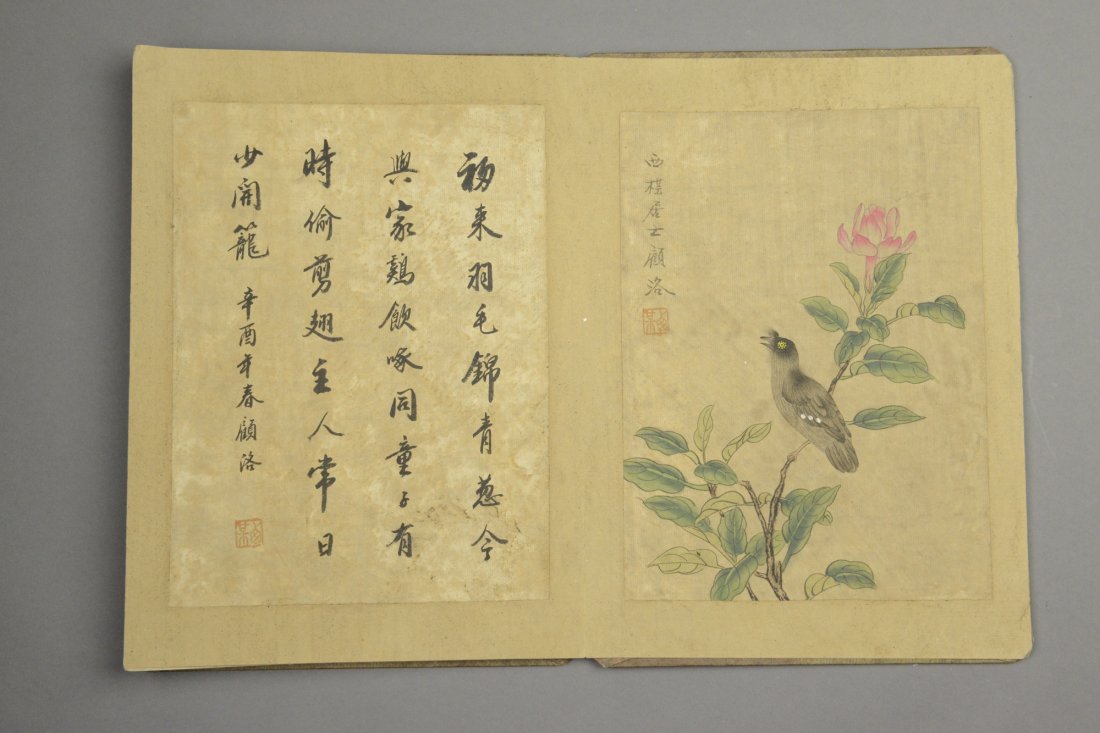 初来羽毛錦青葱今
與家鷄飲啄同童子有
時偷剪翅主人常日
少開籠
辛酉年春顧洛
西楳居士顧洛